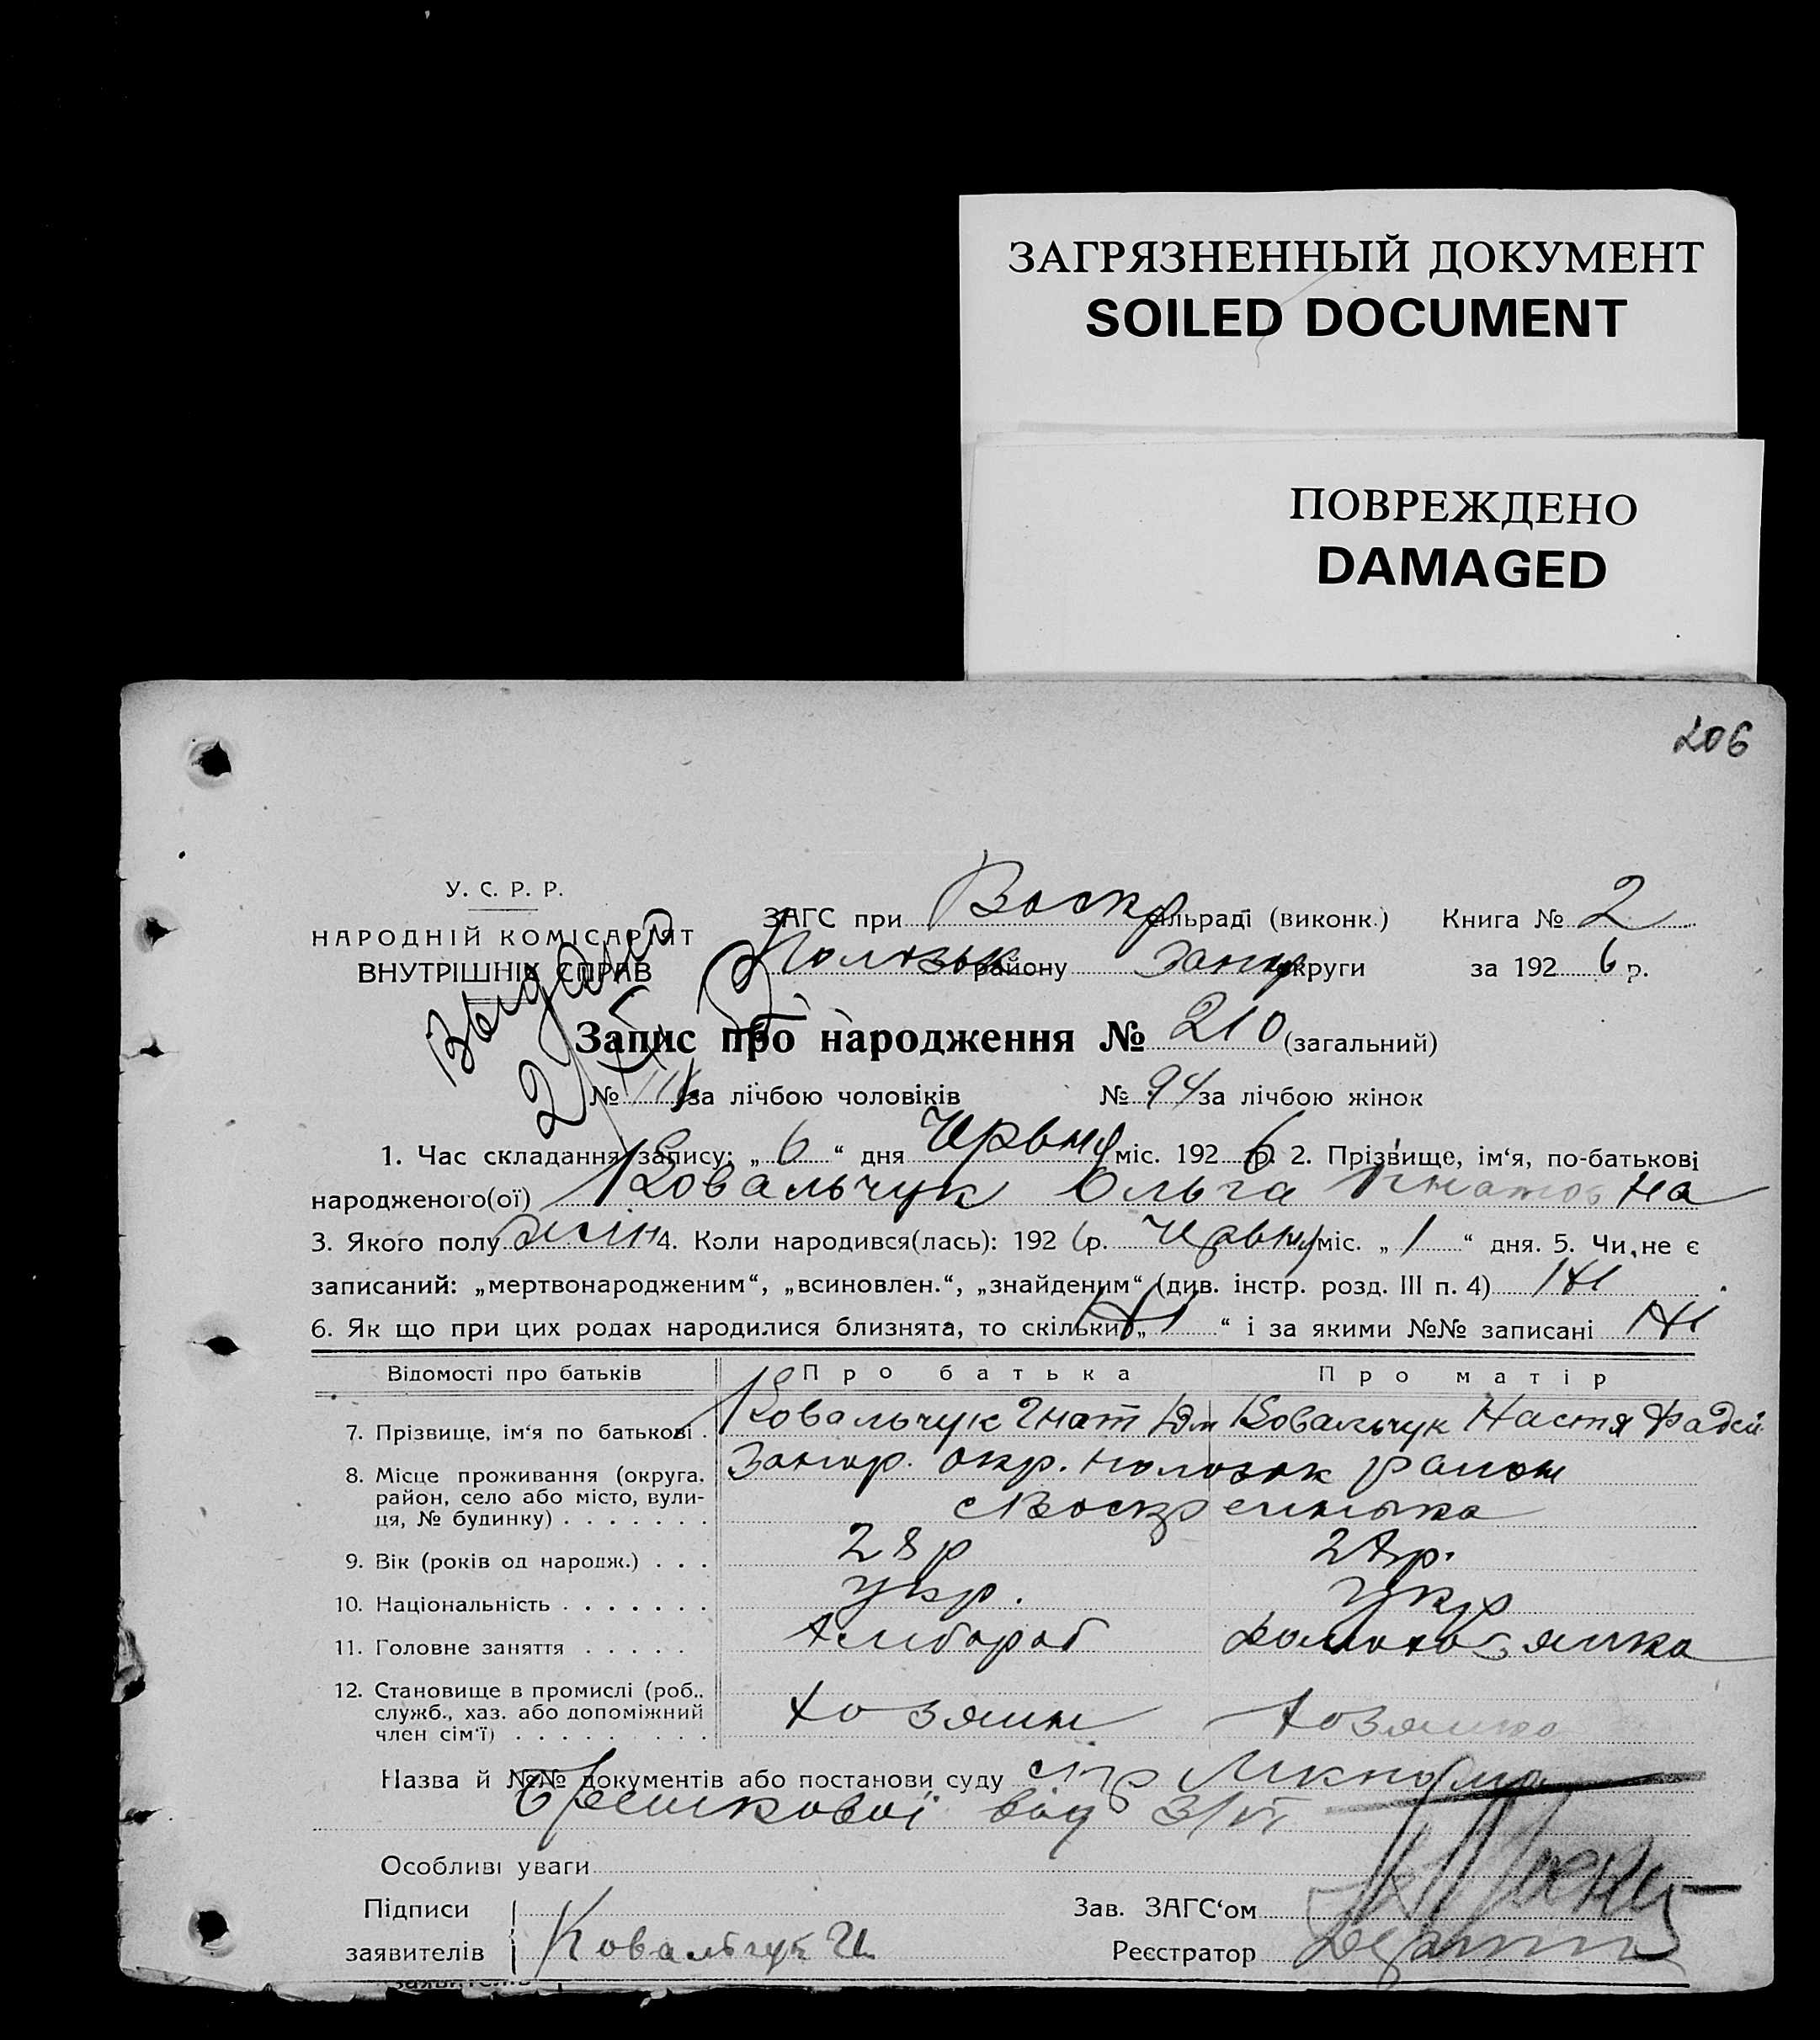 ЗАГРЯЗНЕННЫЙ ДОКУМЕНТ
SOILED DOCUMENT
ПОВРЕЖДЕНО
DAMAGED
206
У. С. Р. Р.
НАРОДНІЙ КОМІСАРІЯТ
ВНУТРІШНІХ СПРАВ
ЗАГС при Воскр сільраді (виконк.) Книга № 2
району Запор округи за 1926 р.
Запис про народження № 210 (загальний)
№ за лічбою чоловіків № 94 за лічбою жінок
1. Час складання запису: „ 6 “ дня міс. 1926 р. 2. Прізвище, ім‘я, по-батькові
народженого(ої) Ковальчук Ольга Гнатовна
3. Якого полу жін 4. Коли народився(лась): 1926 р. міс. „ 1 “ дня. 5. Чи не є
записаний: „мертвонародженим“, „всиновлен.“, „знайденим“ (див. інстр. розд. III п. 4) Ні
6. Як що при цих родах народилися близнята, то скільки „ “ і за якими №№ записані Ні
Відомості про батьків Про батька Про матір
7. Прізвище, ім‘я по батькові . Ковальчук Гнат Ковальчук Настя Фадей
8. Місце проживання (округа, Запор. окр. район
район, село або місто, вули-
ця, № будинку) . . . . . . .
9. Вік (років од народж.) . . . 28 р 28 р.
10. Національність . . . . . . . укр. укр
11. Головне заняття . . . . . Хлібороб домохозяйка
12. Становище в промислі (роб.,
служб., хаз. або допоміжний хозяин хозяйка
член сім‘ї) . . . . . . . . .
Назва й №№ документів або постанови суду
від 3/VI
Особливі уваги
Підписи Зав. ЗАГС‘ом
заявителів Ковальчук Реєстратор